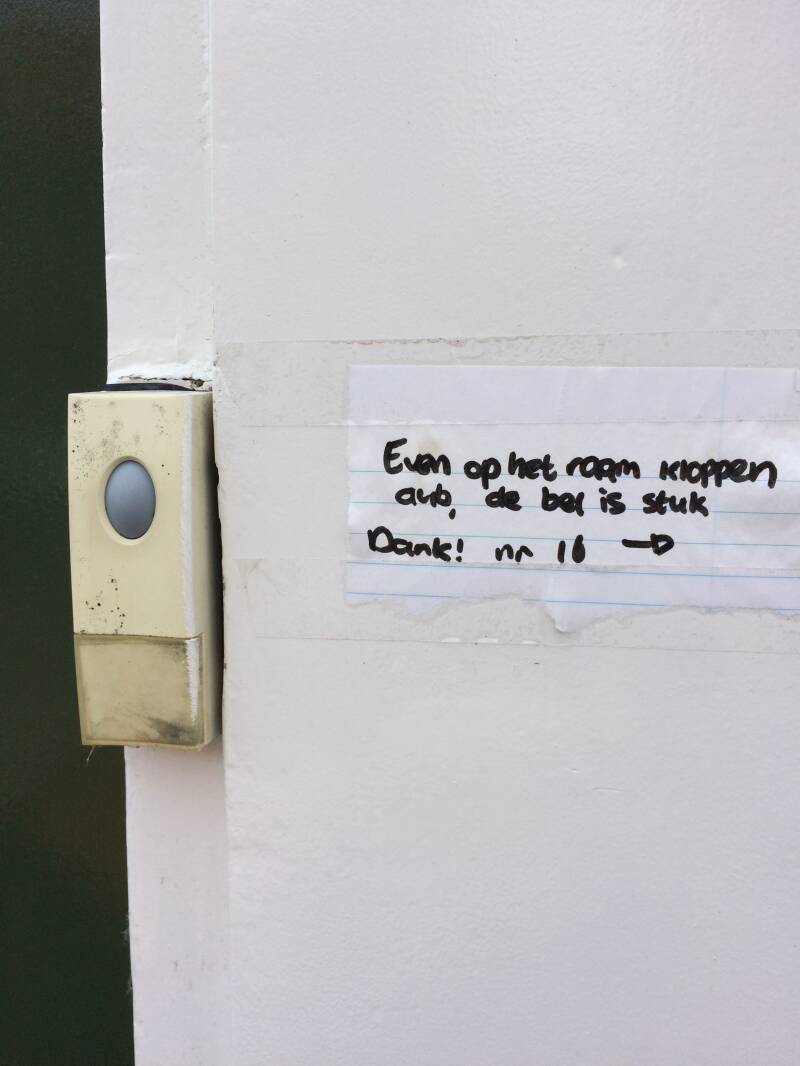 Even op het raam kloppen
aub, de bel is stuk
Dank! nr 16 →